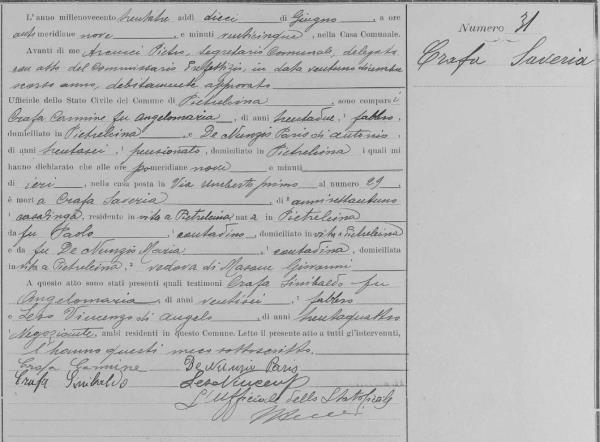 L'anno millenovecento trentatre addì dieci di Giugno, a ore
antimeridiane nove, e minuti venticinque, nella Casa Comunale.
Avanti di me Arcucci Pietro, segretario Comunale, delegato
con atto del Commissario Prefettizio, in data ventuno dicembre
scorso anno, debitamente approvato
Ufficiale dello Stato Civile del Comune di Pietrelcina, sono comparsi
Crafa Carmine fu Angelomaria, di anni trentadue, fabbro,
domiciliato in Pietrelcina, e De Nunzio Paris di Antonio,
di anni trentasei, pensionato, domiciliato in Pietrelcina i quali mi
hanno dichiarato che alle ore pomeridiane nove e minuti
di ieri, nella casa posta in Via Umberto primo al numero 29,
è morta Crafa Saveria di anni settantuno
casalinga, residente in vita a Pietrelcina nata in Pietrelcina
da fu Paolo, contadino, domiciliato in vita a Pietrelcina
e da fu De Nunzio Maria, contadina, domiciliata
in vita a Pietrelcina, vedova di Giovanni
A questo atto sono stati presenti quali testimoni Crafa Sinibaldo fu
Angelomaria, di anni ventisei, fabbro
e Leso Vincenzo di Angelo, di anni trentaquattro
Negoziante, ambi residenti in questo Comune. Letto il presente atto a tutti gl'intervenuti,
l'hanno questi meco sottoscritto.
Crafa Carmine De Nunzio Paris
Crafa Sinibaldo
L'Ufficiale dello Stato Civile
Numero 31
Crafa Saveria